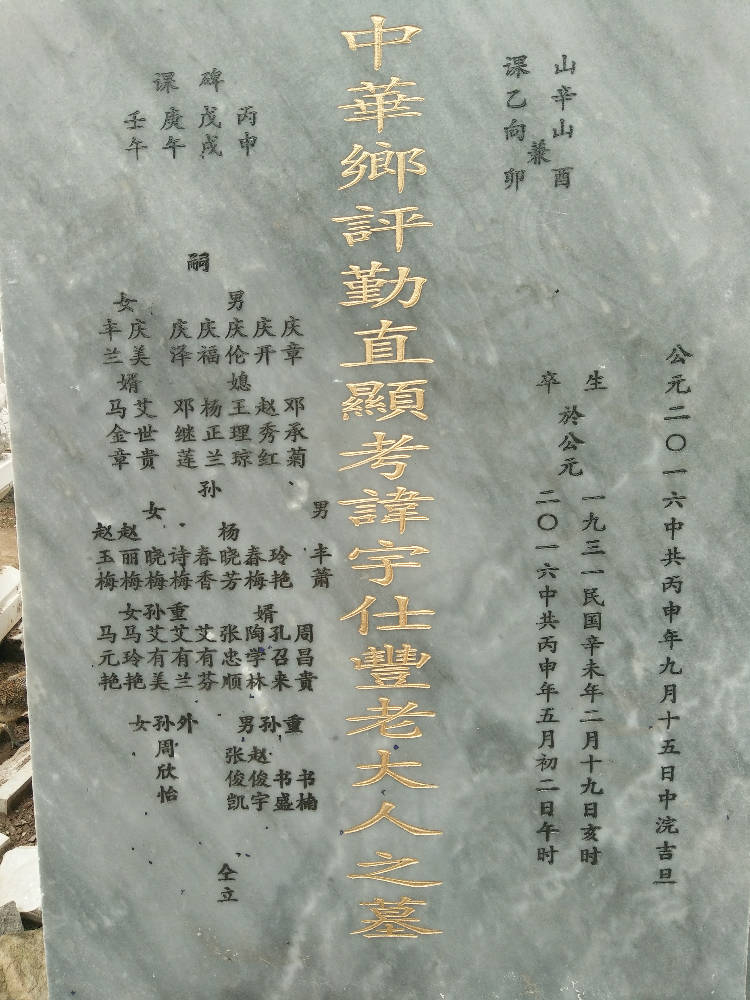 公元二〇一六中共丙申年九月十五日中浣吉旦
山辛山酉
兼
课乙向卯
生
卒
於公元
一九三一民国辛未年二月十九日亥时
二〇一六中共丙申年五月初二日午时
中華鄉評勤直顯考諱宇仕豐老大人之墓
碑课
丙申
戊戌
庚午
壬午
嗣
男
庆章
庆开
庆伦
庆福
庆泽
女
庆美
丰兰
媳
邓承菊
赵秀红
王理琼
杨正兰
邓继莲
婿
艾世貴
马金章
孙
男
丰箫
女
玲艳
春梅
杨晓芳
春香
诗梅
晓梅
赵丽梅
赵玉梅
婿
周昌貴
孔召来
陶学林
张忠顺
重孙女
艾有芬
艾有兰
艾有美
马玲艳
马元艳
重孙男
书楠
书盛
赵俊宇
张俊凯
外孙女
周欣怡
仝立